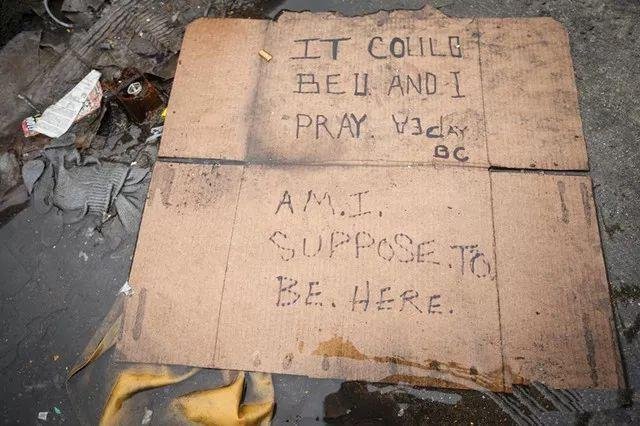 IT COULD
BE U. AND I
PRAY.
BC
A M. I.
SUPPOSE. TO
BE. HERE.